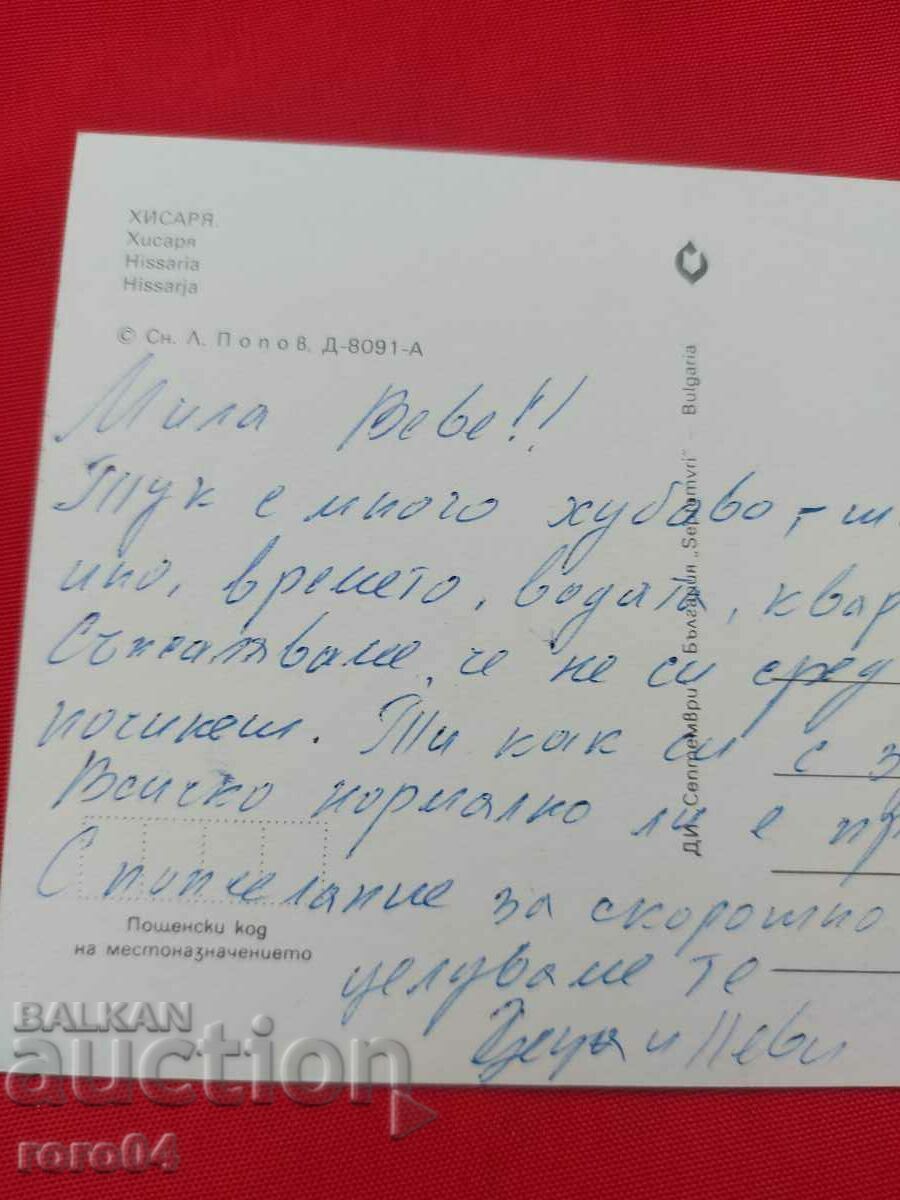 ХИСАРЯ.
Хисаря
Hissaria
Hissarja
© Сн. Л. Попов, Д-8091-А
ДИ „Септември България „Septemvri" – Bulgaria
Мила Веве!!
Тук е много хубаво, – ти
ино, времето, водата, квар
Съжаляваме, че не си сред
почикеш. Ти как си с з
Всичко нормално ли е пр
С пожелание за скорошно
целуваме те
Цеца и Неви
Пощенски код
на местоназначението
BALKAN
auction
roro04